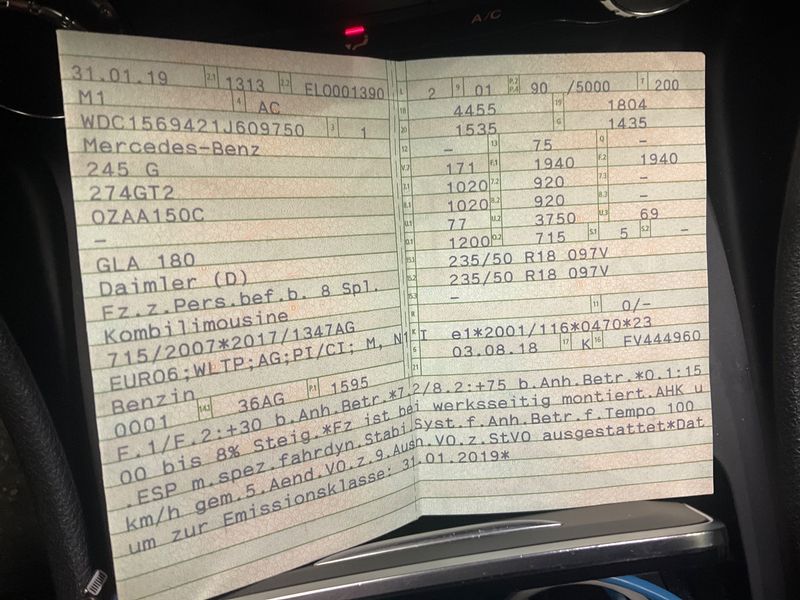 A/C
31.01.19 2.1 1313 2.2 ELO001390
M1 4 AC
WDC1569421J609750 3 1
Mercedes-Benz
245 G
274GT2
OZAA150C
–
GLA 180
Daimler (D)
Fz.z.Pers.bef.b. 8 Spl.
Kombilimousine
715/2007*2017/1347AG
EURO6;WLTP;AG;PI/CI; M, N1 I
Benzin
0001 14.1 36AG P.1 1595
L 2 9 01 P.2 P.4 90 /5000 T 200
18 4455 19 1804
20 1535 G 1435
12 – 13 75 Q –
V.7 171 F.1 1940 F.2 1940
7.1 1020 7.2 920 7.3 –
8.1 1020 8.2 920 8.3 –
U.1 77 U.2 3750 U.3 69
O.1 1200 O.2 715 S.1 5 S.2 –
15.1 235/50 R18 097V
15.2 235/50 R18 097V
15.3 –
R 11 0/–
K e1*2001/116*0470*23
6 03.08.18 17 K 16 FV444960
21
F.1/F.2:+30 b.Anh.Betr.*7.2/8.2:+75 b.Anh.Betr.*O.1:15
00 bis 8% Steig.*Fz ist bei werksseitig montiert.AHK u
.ESP m.spez.fahrdyn.Stabi.Syst.f.Anh.Betr.f.Tempo 100
km/h gem.5.Aend.VO.z.9.Ausn.VO.z.StVO ausgestattet*Dat
um zur Emissionsklasse: 31.01.2019*